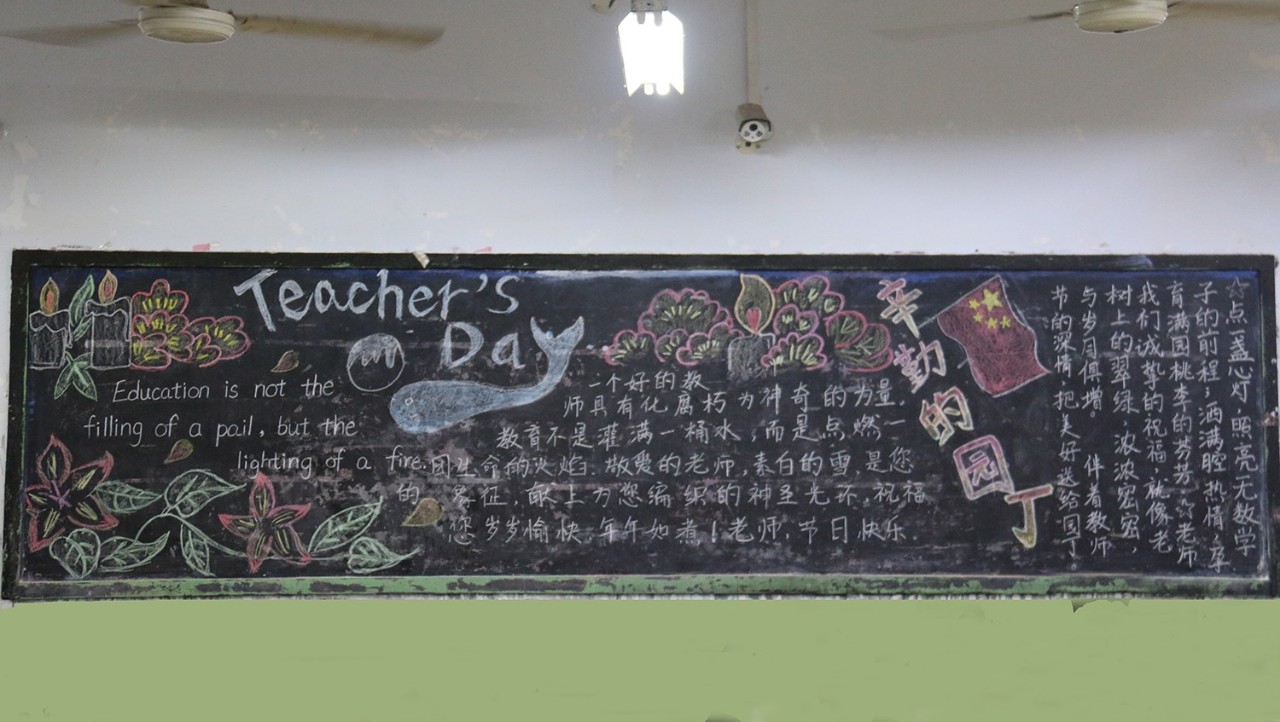 Teacher's
Day
Education is not the
filling of a pail, but the
lighting of a fire.
一个好的教
师具有化腐朽为神奇的力量.
教育不是灌满一桶水,而是点燃一
团生命的火焰.敬爱的老师,素白的雪.是您
的 象征.献上为您编织的神圣光环.祝福
您岁岁愉快.年年如意!老师.节日快乐.
辛勤的园丁
☆点一盏心灯.照亮无数学
子的前程;洒满腔热情.
育满园桃李的芬芳.☆老师
我们诚挚的祝福.就像老
树上的翠绿.浓浓密密,
与岁月俱增.伴着教师
节的深情.把美好送给园丁.